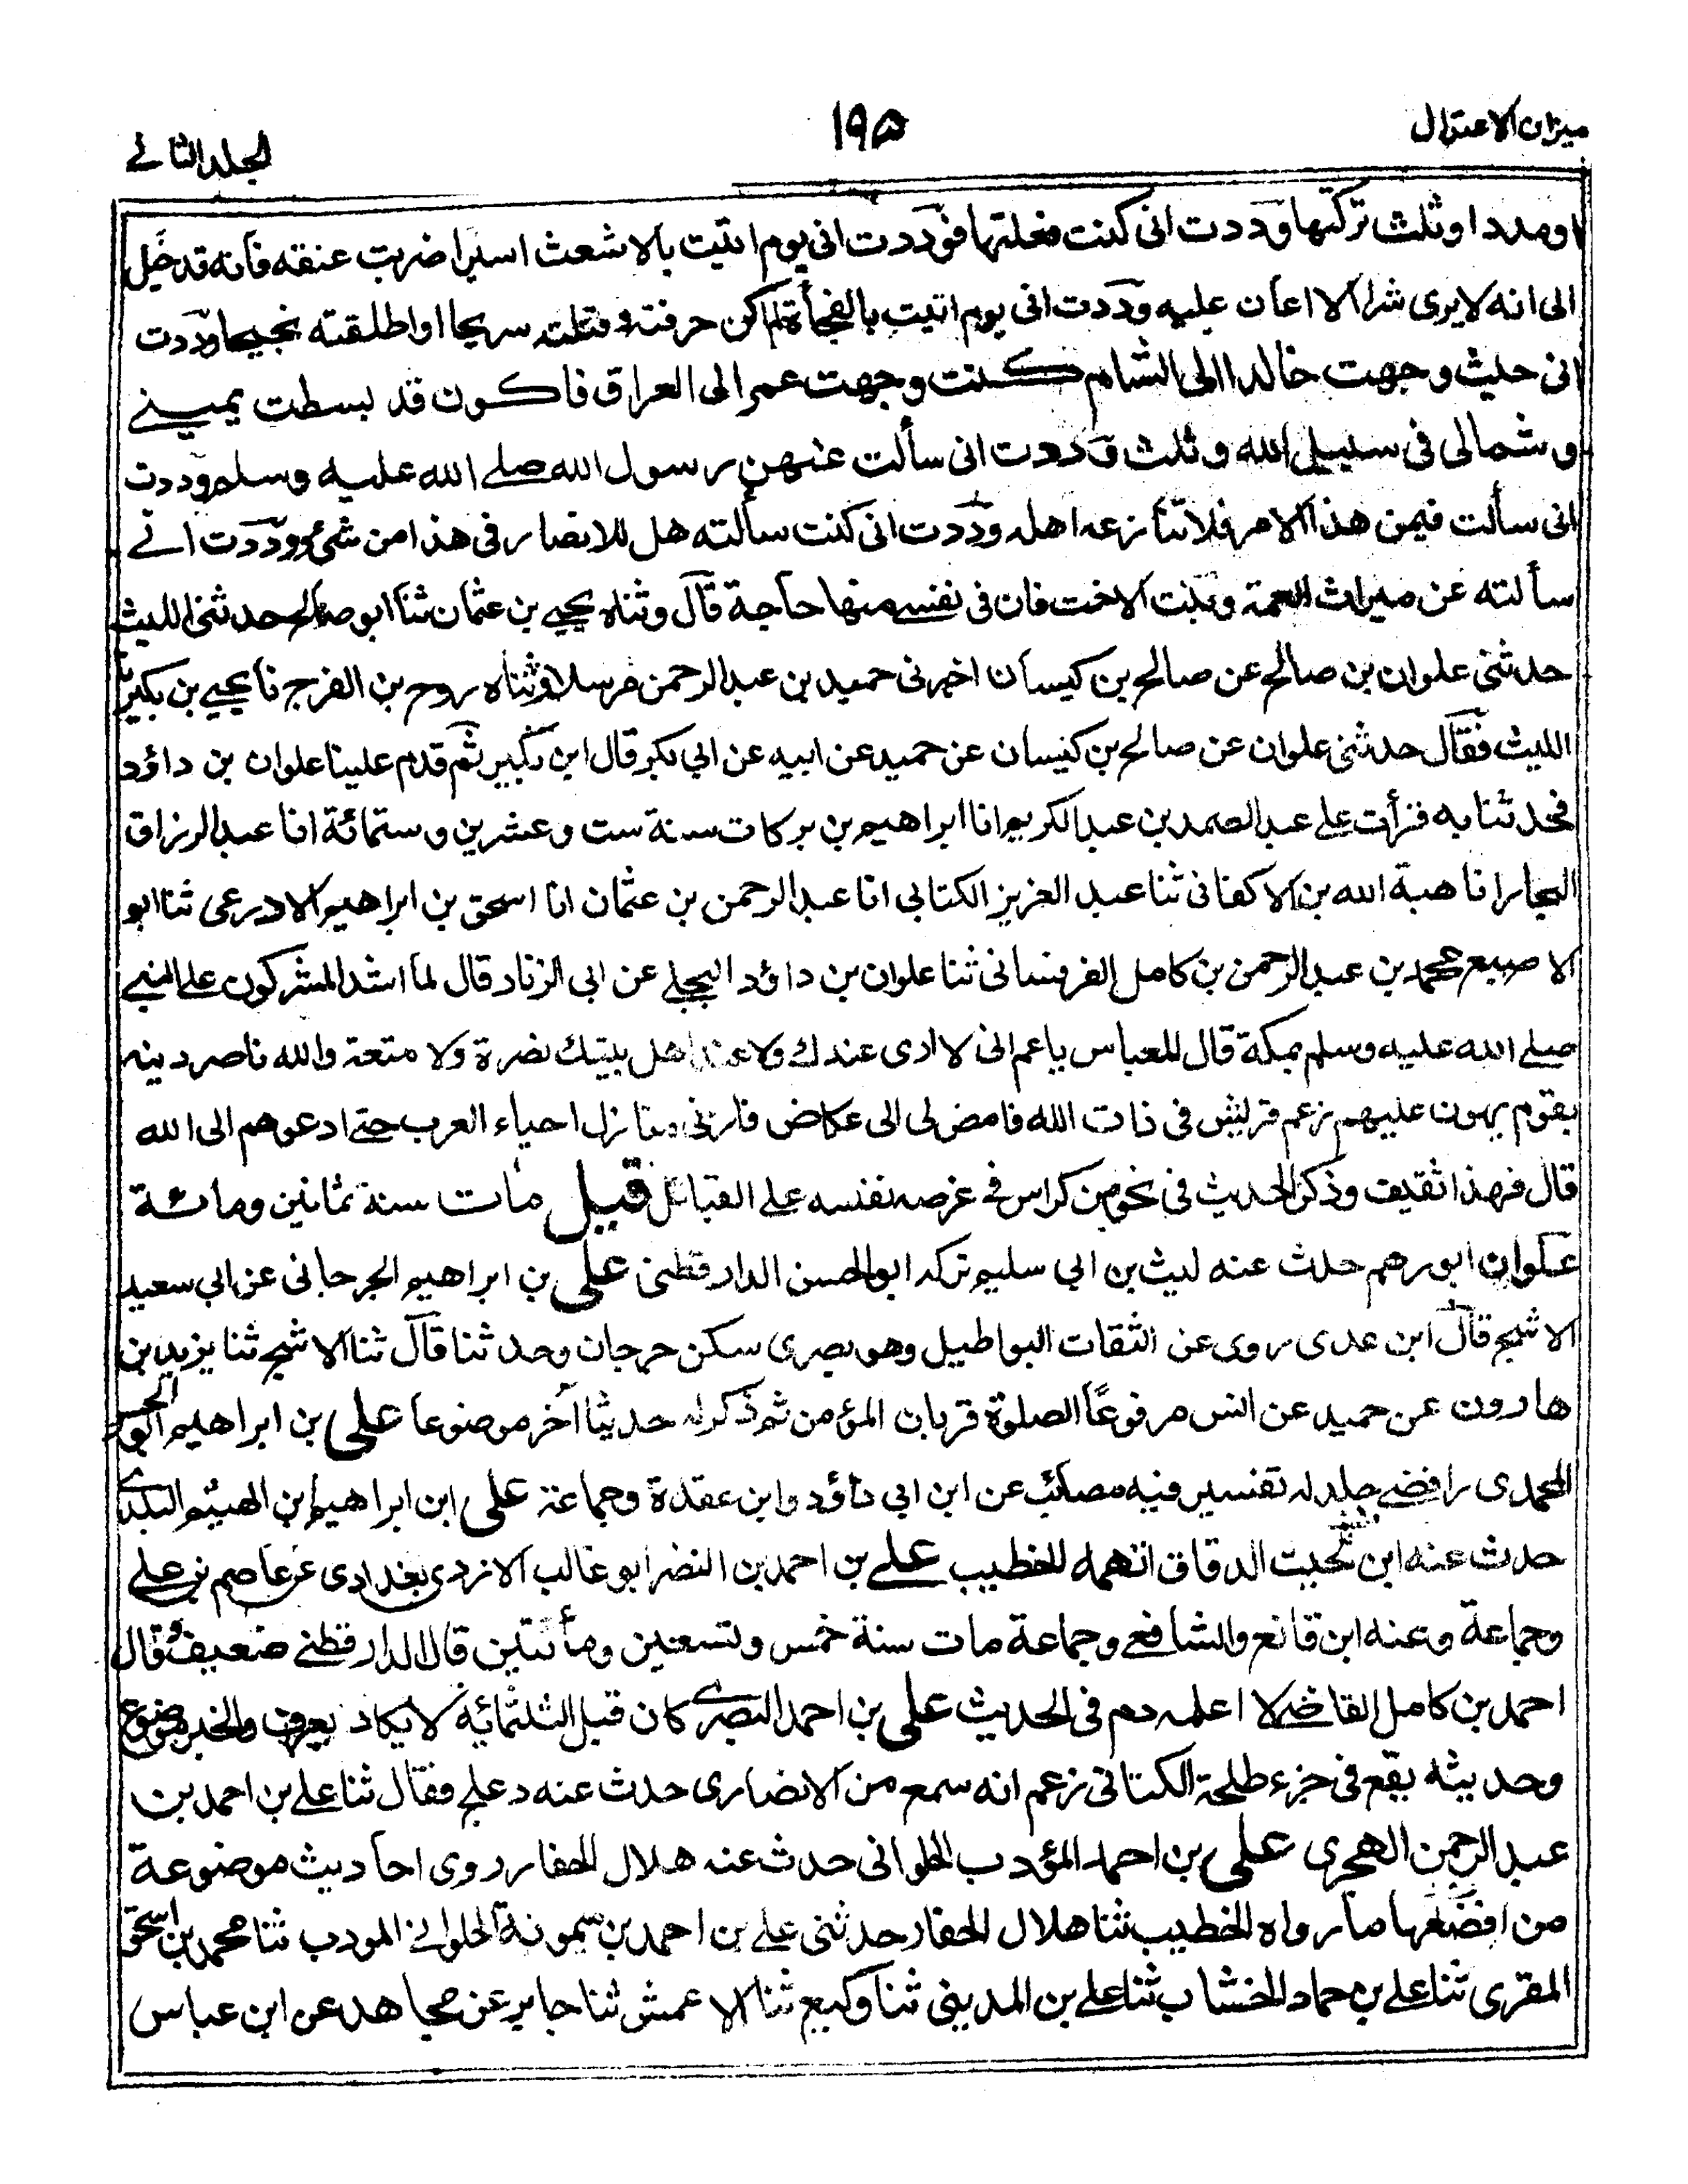 ميزان الاعتدال
١٩٥
الجلد الثانے
اومددا وثلث تركتها وددت انى كنت فعلتها فوددت انى يوم اتيت بالاشعث اسيرا ضربت عنقه فانه قد خيل
الى انه لا يرى شرا الا اعان عليه وددت انى يوم اتيت بالفجأة لم اكن حرقته وقتلته سريحا او اطلقته نجيحا وددت
انى حيث وجهت خالدا الى الشام كنت وجهت عمر الى العراق فاكون قد بسطت يمينے
و شمالى فى سبيل الله و ثلث وددت انى سألت عنهن رسول الله صلے الله عليه وسلم وددت
انى سألت فيمن هذا الامر فلا تنازعه اهله وددت انى كنت سألته هل للانصار فى هذا من شئ ووددت انے
سألته عن ميراث العمة وبنت الاخت فان فى نفسے منها حاجة قال وثناه يحيے بن عثمان ثنا ابو صالح حدثنى الليث
حدثنى علوان بن صالح عن صالح بن كيسان اخبرنى حميد بن عبد الرحمن مرسلا وثناه روح بن الفرج نا يحيے بن بكير
الليث فقال حدثنى علوان عن صالح بن كيسان عن حميد عن ابيه عن ابي بكر قال ابن بكير ثم قدم علينا علوان بن داؤد
فحدثنا به قرأت علے عبد الصمد بن عبد الكريم انا ابراهيم بن بركات سنة ست وعشرين وستمائة انا عبد الرزاق
النجار انا هبة الله بن الاكفانى ثنا عبد العزيز الكتابى انا عبد الرحمن بن عثمان انا اسحق بن ابراهيم الادرعى ثنا ابو
الاصبع محمد بن عبد الرحمن بن كامل القرقسانى ثنا علوان بن داؤد البجلے عن ابى الزناد قال لما اشتد المشركون على النبے
صلے الله عليه وسلم بمكة قال للعباس ياعم انى لا ارى عندك ولا عند اهل بيتك نصرة ولا متعة والله ناصر دينه
بقوم يهون عليهم زعم قريش فى ذات الله فامض لى الى عكاض فارنى منازل احياء العرب حتے ادعوهم الى الله
قال فهذا ثقيف وذكر الحديث فى نحو من كراس فے عرضه نفسه علے القبائل قيل مات سنة ثمانين ومائة
عكوان ابو رهم حدث عنه ليث بن ابي سليم تركه ابو الحسن الدارقطنى على بن ابراهيم الجرجانى عن ابي سعيد
الاشج قال ابن عدى روى عن الثقات البواطيل وهو بصرى سكن جرجان وحدثنا قال ثنا الاشج ثنا يزيد بن
هارون عن حميد عن انس مرفوعا الصلوة قربان المؤمن ثم ذكر له حديثا آخر موضوعا على بن ابراهيم ابو الحسن
المحمدى رافضے جلد له تفسير فيه مصائب عن ابن ابي داؤد وابن عقدة وجماعة على ابن ابراهيم بن الهيثم البلدى
حدث عنه ابن بخيت الدقاق اتهمه الخطيب علے بن احمد بن النضر ابو غالب الازدى بغدادى عن عاصم بن علے
وجماعة وعنه ابن قانع والشافعے وجماعة مات سنة خمس وتسعين ومأتتين قال الدارقطنے ضعيف وقال
احمد بن كامل القاضے لا اعلمه دم فى الحديث على بن احمد البصرے كان قبل الثلثمائة لا يكاد يعرف والخبر موضوع
وحديثه يقع فى جزء طلحة الكتانى زعم انه سمع من الانصارى حدث عنه دعلج فقال ثنا علے بن احمد بن
عبد الرحمن الهجرى على بن احمد المؤدب الحلوانى حدث عنه هلال الحفار روى احاديث موضوعة
من افضعها ما رواه الخطيب ثنا هلال الحفار حدثنى علے بن احمد بن ممونة الحلوانے المودب ثنا محمد بن اسحق
المقرى ثنا علے بن حماد الخشاب ثنا علے بن المدينى ثنا وكيع ثنا الاعمش ثنا جابر عن مجاهد عن ابن عباس